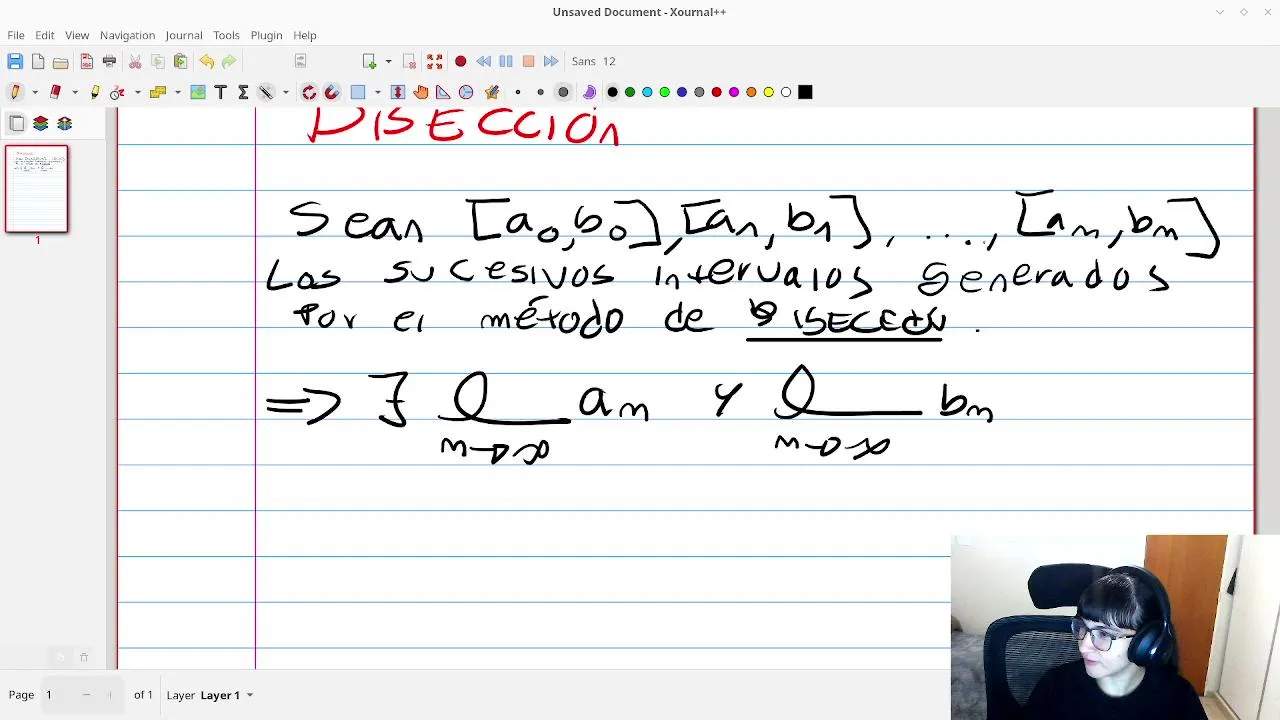 Unsaved Document - Xournal++
File Edit View Navigation Journal Tools Plugin Help
Sans 12
DISECCIÓN
Sean [a₀,b₀],[a₁,b₁], ...., [aₙ,bₙ]
Los sucesivos intervalos generados
Por el método de DISECCIÓN.
=> ∃ l___ aₙ y l___ bₙ
n→∞ n→∞
1
Page 1 of 1 Layer Layer 1